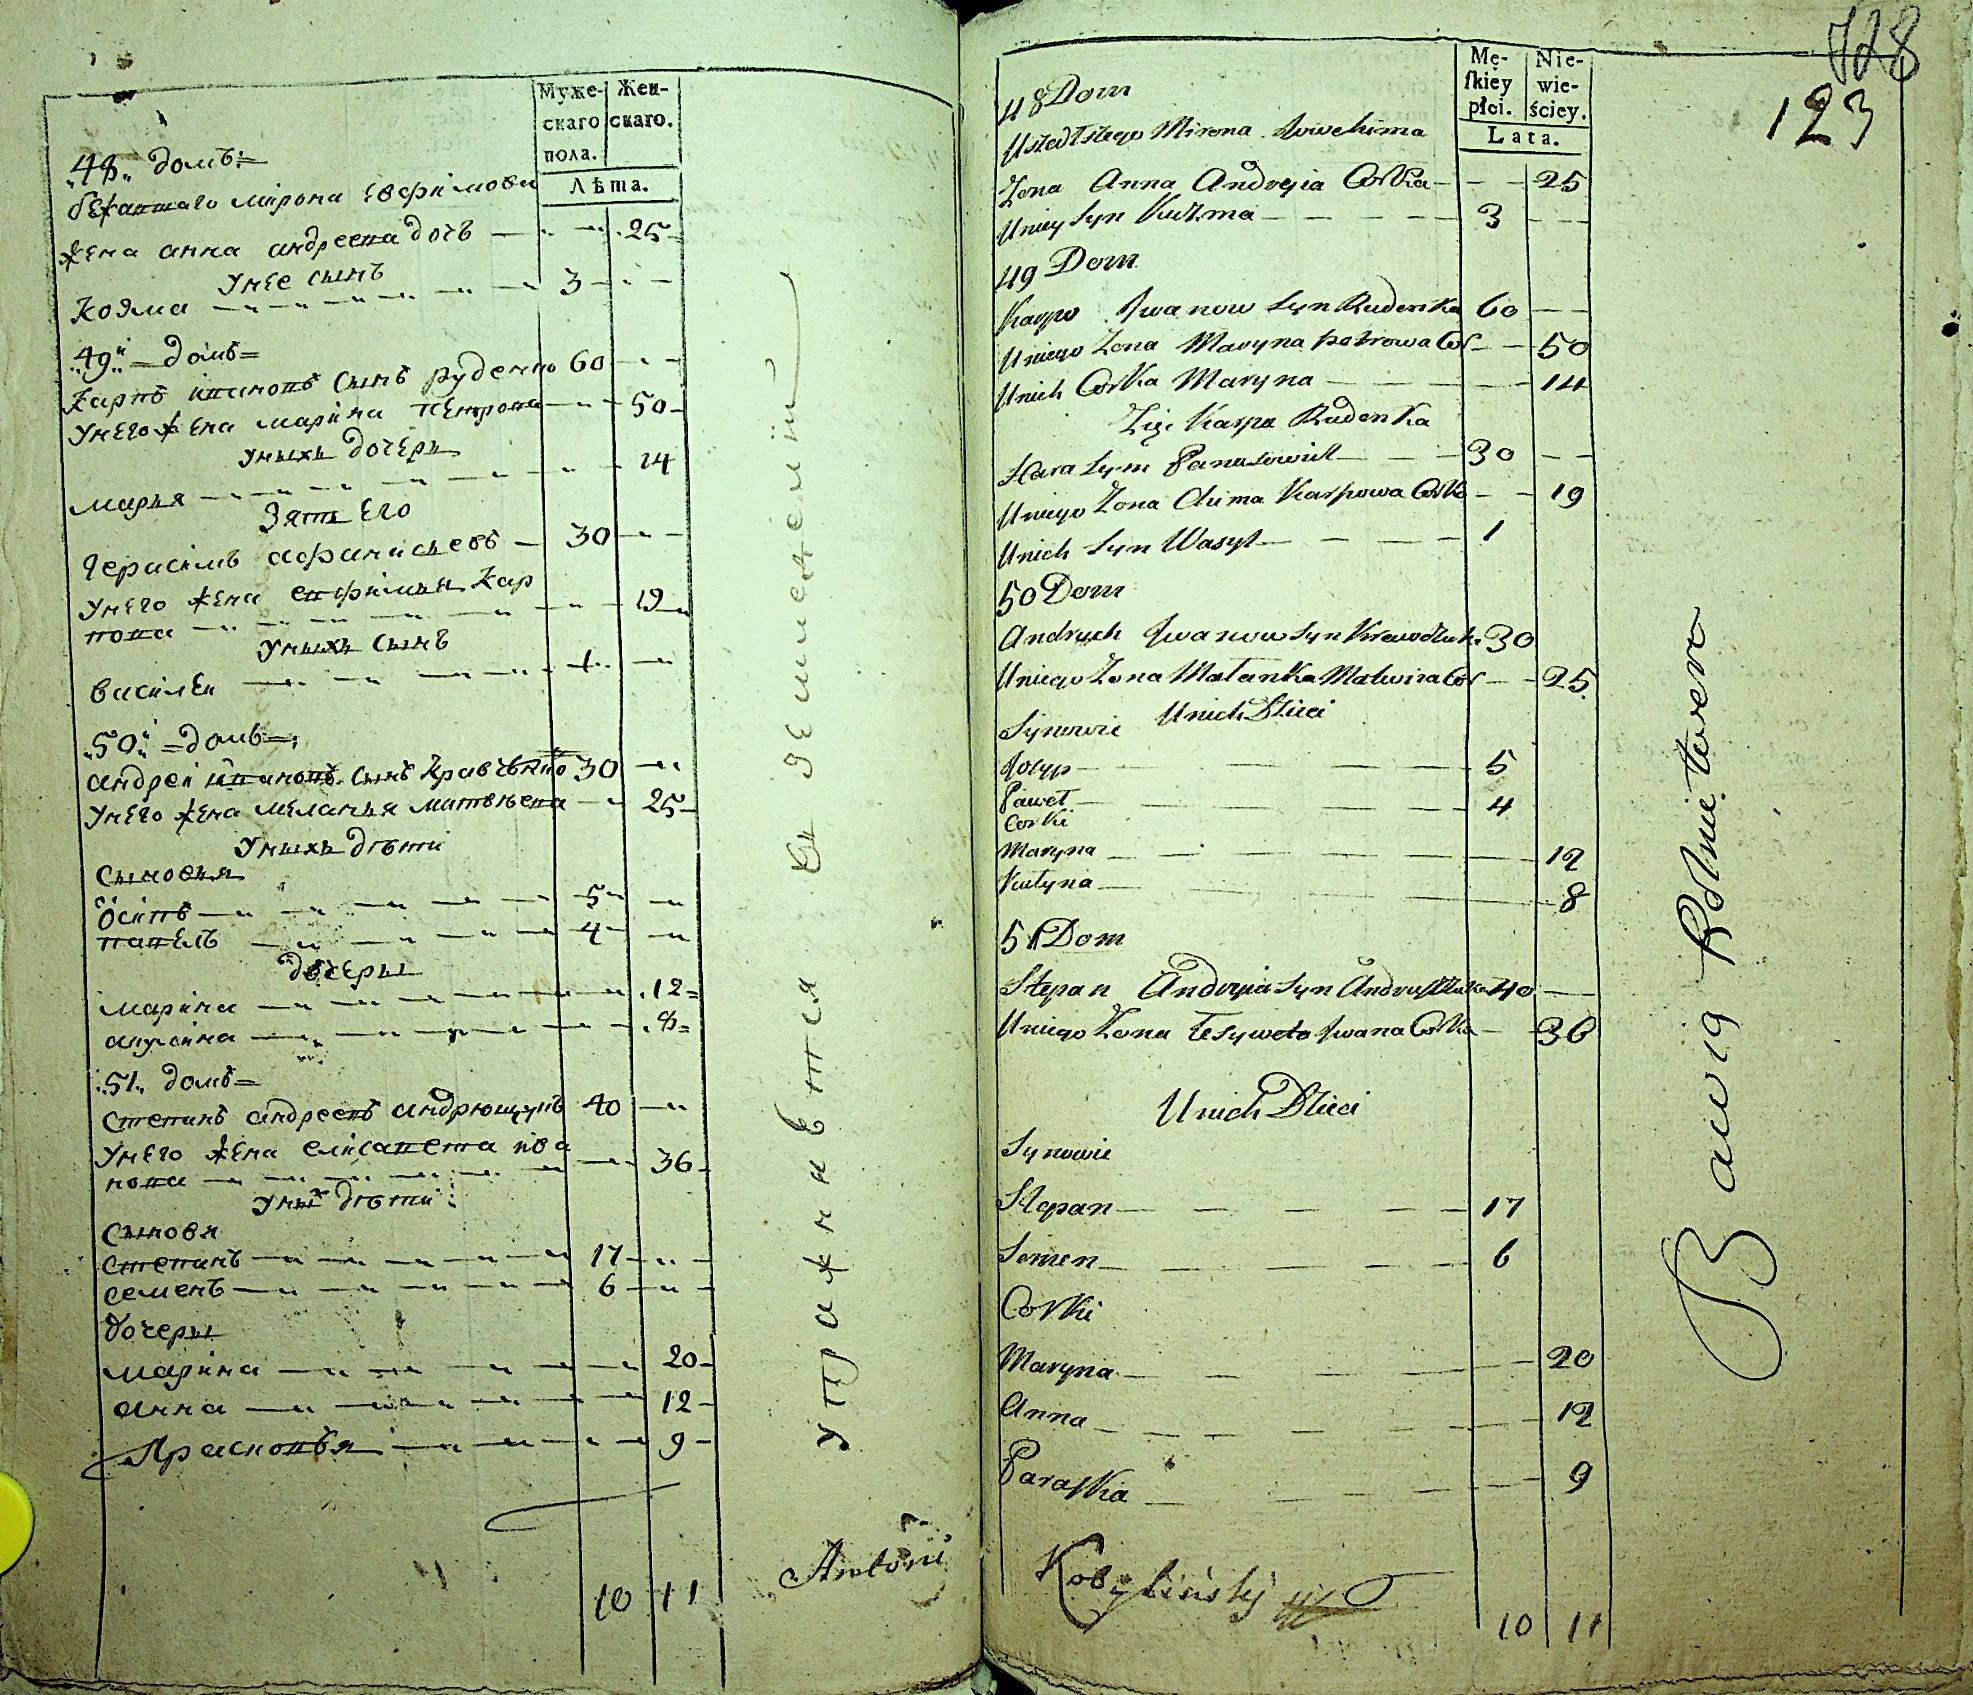 Муже-
скаго
пола.
Жен-
скаго.
Лѣта.
„48„ домъ:=
бежавшаго мирона евфимова
жена анна андреева дочь — 25
У нее сынъ
козма 3
„49„ — домъ=
карпъ ивановъ сынъ руденко 60
У него жена марина петрова 50
У нихъ дочерь
марья 14
Зять его
герасимъ афанасьевъ — 30
У него жена евфимья кар
пова 19
У нихъ сынъ
василеи 1
„50„ = домъ=
андреи ивановъ сынъ кравченко 30
У него жена меланья матвѣева 25
У нихъ дѣти
сыновья
осипъ 5
павелъ 4
дочеры
марина 12
8
„51„ домъ=
степанъ андреевъ андрющукъ 40
У него жена елисавета ива
нова 36
У них дѣти:
сыновя
степанъ 17
семенъ 6
дочеры
марина 20
анна 12
Прасковья 9
10 11
упражнаются въ земледелии
Antoni
728
123
Mę-
ſkiey
płci.
Nie-
wie-
ściey.
Lata.
48 Dom
Uszedłszego Mirona Jowchima
Żona Anna Andreja Corka — 25
U niey Syn Kuzma — 3
49 Dom
Karpo Jwanow Syn Rudenka 60
U niego Żona Maryna Petrowa Cor 50
U nich Corka Maryna 14
Zięć Karpa Rudenka
Harasym Panasowicz 30
U niego Żona Chima Karpowa Corka 19
U nich Syn Wasyl 1
50 Dom
Andruch Jwanow Syn Krawczuk 30
U niego Żona Małanka Matwira Cor 25
U nich Dzieci
Synowie
Josyp 5
Paweł 4
Corki
Maryna 12
8
51 Dom
Stepan Andreja Syn Andruszczuk 40
U niego Żona Łesyweta Jwana Corka 36
U nich Dzieci
Synowie
Stepan 17
Semen 6
Corki
Maryna 20
Anna 12
Paraſka 9
Kobyliński
10 11
Bawią Rolnictwem